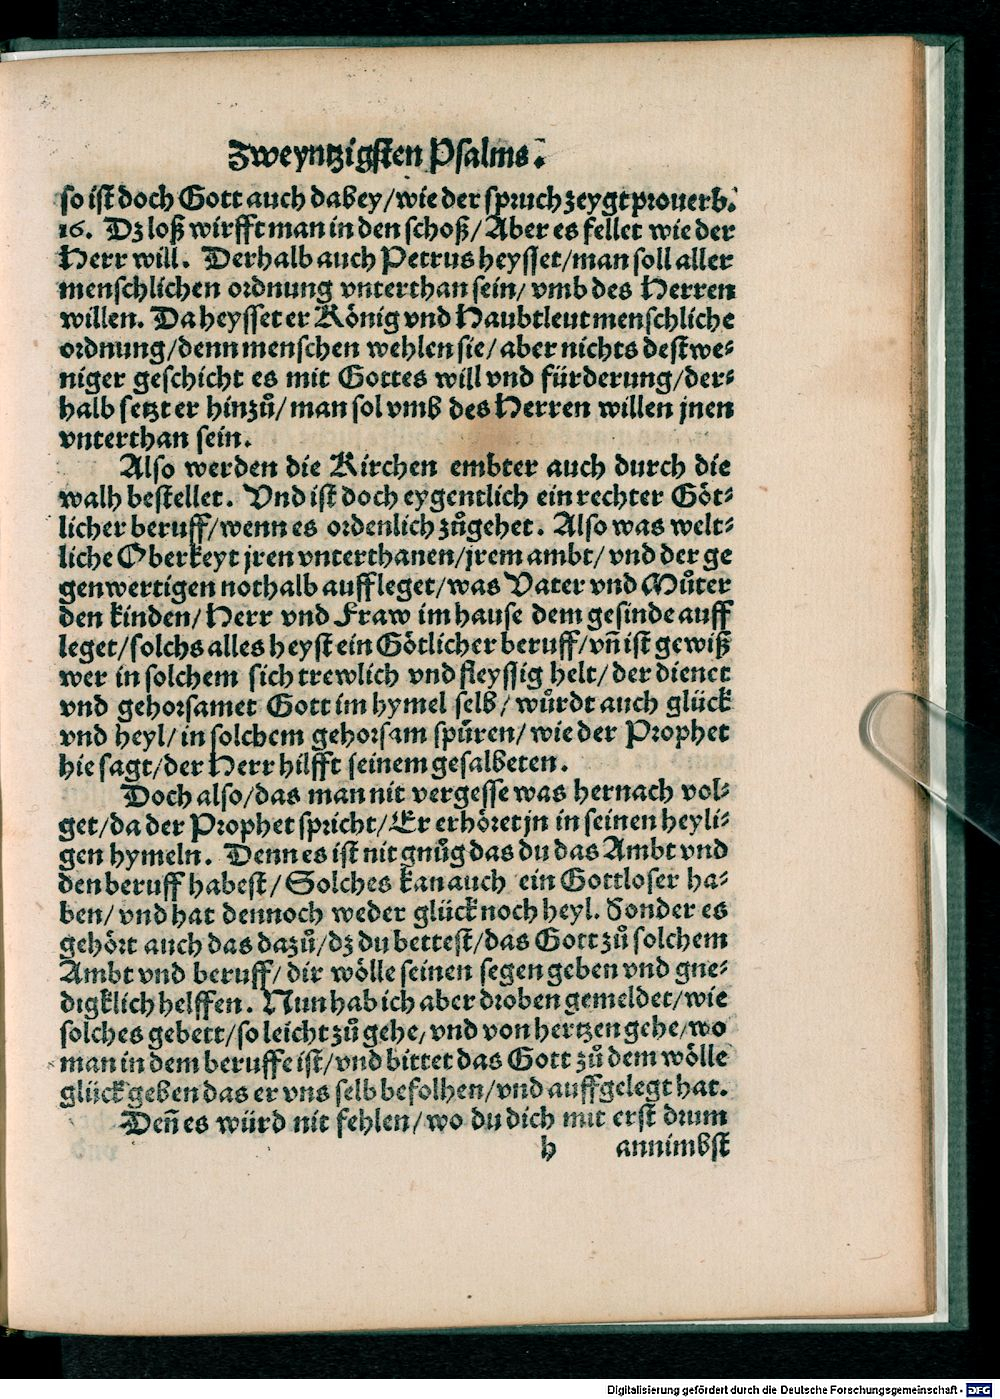 Zweyntzigsten Psalms.
so ist doch Gott auch dabey/wie der spruch zeygt prouerb.
16. Dz loß wirfft man in den schoß/Aber es fellet wie der
Herr will. Derhalb auch Petrus heysset/man soll aller
menschlichen ordnung vnterthan sein/vmb des Herren
willen. Da heysset er König vnd Haubtleut menschliche
ordnung/denn menschen wehlen sie/aber nichts destwe-
niger geschicht es mit Gottes will vnd fürderung/der-
halb setzt er hinzů/man sol vmb des Herren willen jnen
vnterthan sein.
Also werden die Kirchen embter auch durch die
walh bestellet. Vnd ist doch eygentlich ein rechter Göt-
licher beruff/wenn es ordenlich zůgehet. Also was welt-
liche Oberkeyt jren vnterthanen/jrem ambt/vnd der ge
genwertigen nothalb auffleget/was Vater vnd Můter
den kinden/Herr vnd Fraw im hause dem gesinde auff
leget/solchs alles heyst ein Götlicher beruff/vn̄ ist gewiß
wer in solchem sich trewlich vnd fleyssig helt/der dienet
vnd gehorsamet Gott im hymel selb/wůrdt auch glück
vnd heyl/in solchem gehorsam spüren/wie der Prophet
hie sagt/der Herr hilfft seinem gesalbeten.
Doch also/das man nit vergesse was hernach vol-
get/da der Prophet spricht/Er erhöret jn in seinen heyli-
gen hymeln. Denn es ist nit gnůg das du das Ambt vnd
den beruff habest/Solches kan auch ein Gottloser ha-
ben/vnd hat dennoch weder glück noch heyl. Sonder es
gehört auch das dazů/dz du bettest/das Gott zů solchem
Ambt vnd beruff/dir wölle seinen segen geben vnd gne-
digklich helffen. Nun hab ich aber droben gemeldet/wie
solches gebett/so leicht zů gehe/vnd von hertzen gehe/wo
man in dem beruffe ist/vnd bittet das Gott zů dem wölle
glück geben das er vns selb befolhen/vnd auffgelegt hat.
Den̄ es würd nit fehlen/wo du dich mit erst drum
h annimbst
Digitalisierung gefördert durch die Deutsche Forschungsgemeinschaft - DFG